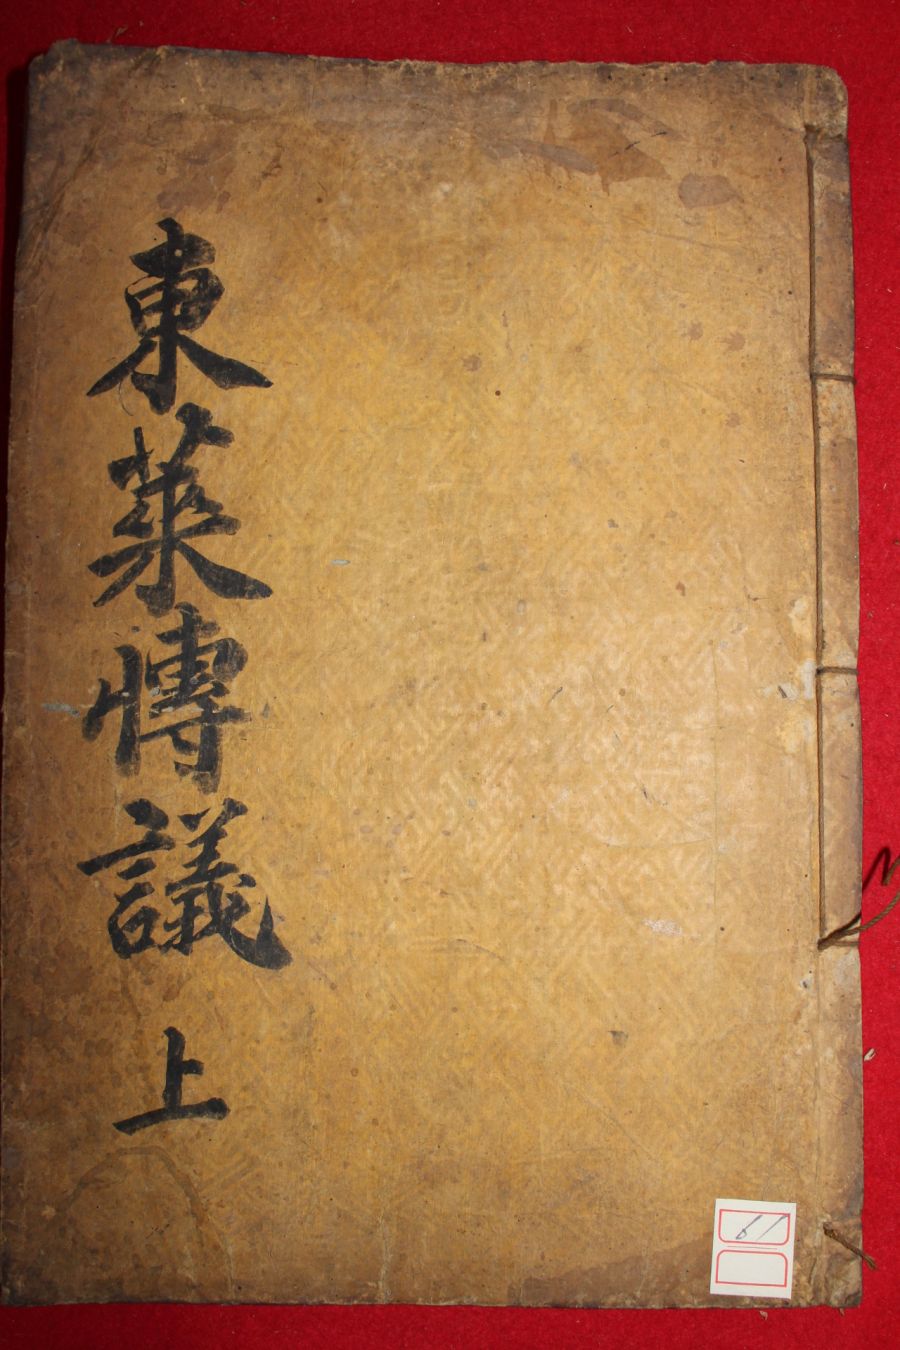 東萊愽議 上
61